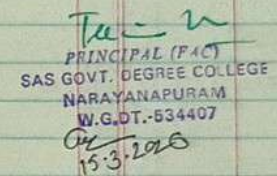 PRINCIPAL (FAC)
SAS GOVT. DEGREE COLLEGE
NARAYANAPURAM
W.G.DT.-534407
15.3.2026